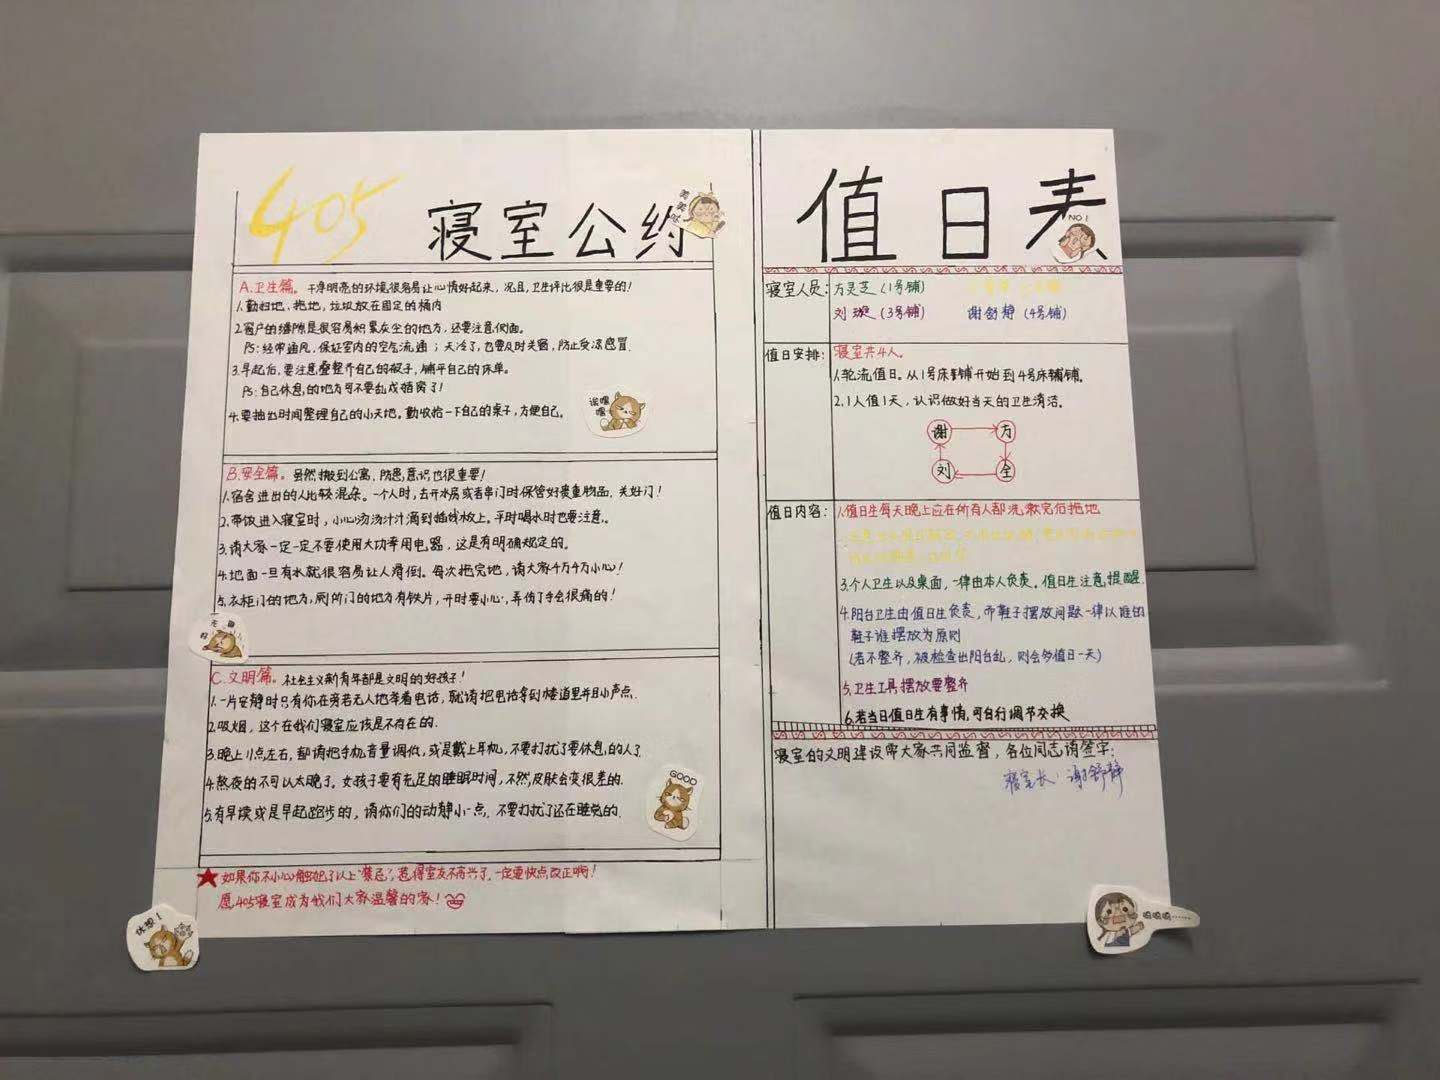 405 寝室公约
美美哒
A.卫生篇。干净明亮的环境很容易让心情好起来，况且，卫生评比很是重要的！
1.勤扫地，拖地，垃圾放在固定的桶内
2.窗户的缝隙是很容易积累灰尘的地方，还要注意侧面。
PS:经常通风，保证室内的空气流通；天冷了，也要及时关窗，防止受凉感冒.
3.早起后，要注意叠整齐自己的被子，铺平自己的床单。
PS:自己休息的地方可不要乱成猪窝了！
4.要抽出时间整理自己的小天地。勤收拾一下自己的桌子，方便自己。
诶嘿嘿
B.安全篇。虽然搬到公寓，防患意识也很重要！
1.宿舍进出的人比较混杂。一个人时，去开水房或者串门时保管好贵重物品，关好门！
2.带饭进入寝室时，小心汤汤汁汁滴到插线板上。平时喝水时也要注意。
3.请大家一定一定不要使用大功率用电器，这是有明确规定的。
4.地面一旦有水就很容易让人滑倒。每次拖完地，请大家千万千万小心！
5.衣柜门的地方，厕所门的地方有铁片，开时要小心，弄伤了手会很痛的！
C.文明篇。社会主义新青年都是文明的好孩子！
1.一片安静时只有你在旁若无人地拿着电话，就请把电话拿到楼道里并且小声点.
2.吸烟，这个在我们寝室应该是不存在的.
3.晚上11点左右，都请把手机音量调低，或是戴上耳机，不要打扰了要休息的人了.
4.熬夜的不可以太晚了，女孩子要有充足的睡眠时间，不然，皮肤会变很差的.
5.有早读或是早起跑步的，请你们的动静小一点，不要打扰了还在睡觉的.
GOOD
★如果你不小心触犯了以上"禁忌"，惹得室友不高兴了，一定要快点改正啊！
愿405寝室成为我们大家温馨的家！
休想！
值日表
NO1
寝室人员：方灵芝(1号铺)
刘璇(3号铺) 谢舒静(4号铺)
值日安排：寝室共4人。
1.轮流值日。从1号床铺开始到4号床铺。
2.1人值1天，认识做好当天的卫生清洁。
谢 方
刘 全
值日内容：1.值日生每天晚上应在所有人都洗漱完后拖地
3.个人卫生以及桌面，一律由本人负责。值日生注意提醒.
4.阳台卫生由值日生负责，而鞋子摆放问题一律以谁的
鞋子谁摆放为原则
(若不整齐，被检查出阳台乱，则会多值日一天)
5.卫生工具摆放要整齐
6.若当日值日生有事情，可自行调节交换
寝室的文明建设需大家共同监督，各位同志请签字：
寝室长：谢舒静
呜呜呜……